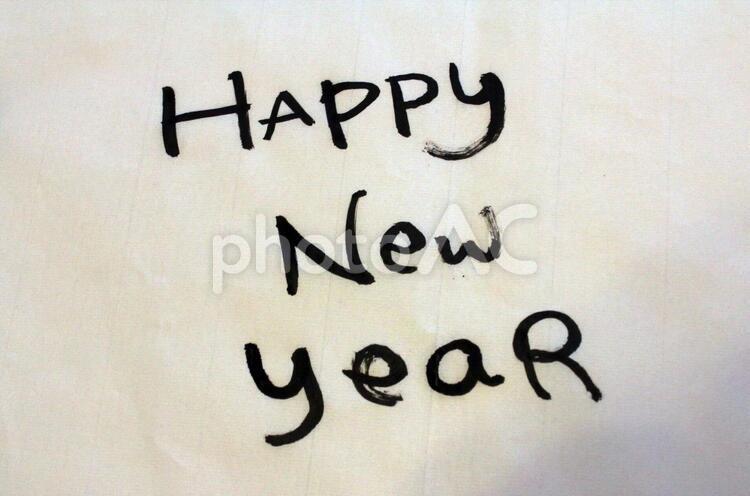 HAPPy
New
yeaR
photoAC